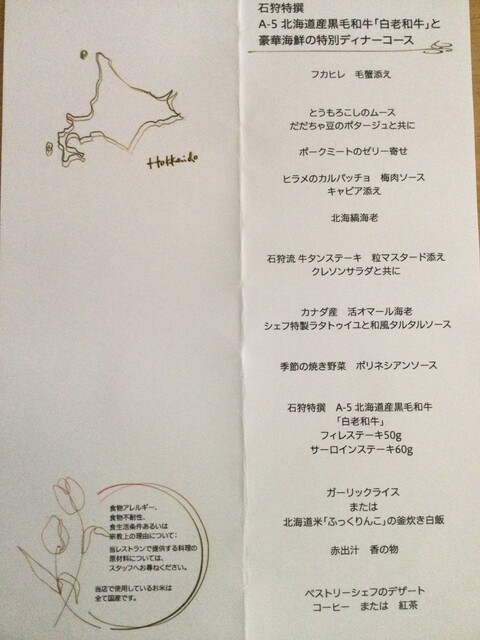 Hokkaido
食物アレルギー、
食物不耐性、
食生活条件あるいは
宗教上の理由について：
当レストランで提供する料理の
原材料については、
スタッフへお尋ねください。
当店で使用しているお米は
全て国産です。
石狩特撰
A-5 北海道産黒毛和牛「白老和牛」と
豪華海鮮の特別ディナーコース
フカヒレ　毛蟹添え
とうもろこしのムース
だだちゃ豆のポタージュと共に
ポークミートのゼリー寄せ
ヒラメのカルパッチョ　梅肉ソース
キャビア添え
北海縞海老
石狩流 牛タンステーキ　粒マスタード添え
クレソンサラダと共に
カナダ産　活オマール海老
シェフ特製ラタトゥイユと和風タルタルソース
季節の焼き野菜　ポリネシアンソース
石狩特撰　A-5 北海道産黒毛和牛
「白老和牛」
フィレステーキ50g
サーロインステーキ60g
ガーリックライス
または
北海道米「ふっくりんこ」の釜炊き白飯
赤出汁　香の物
ペストリーシェフのデザート
コーヒー　または　紅茶